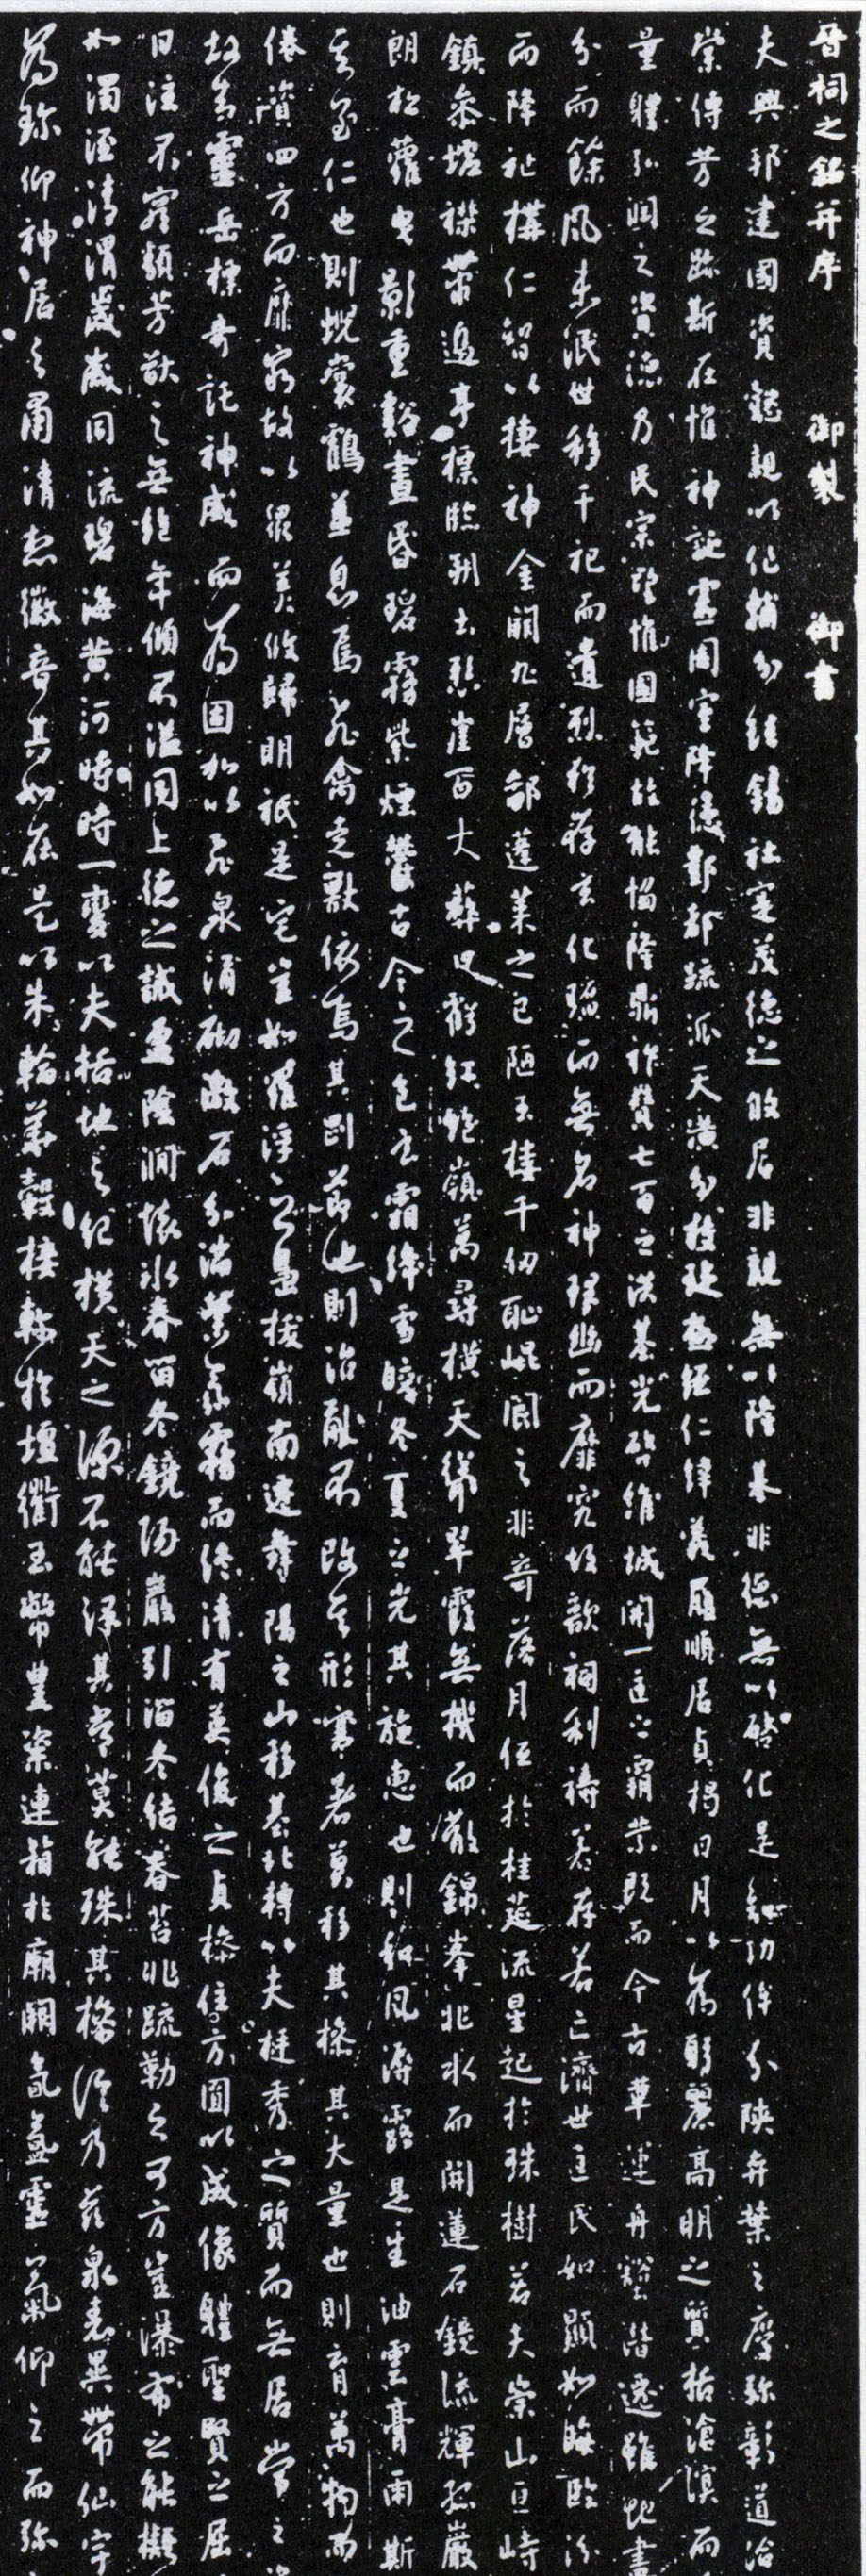 晉祠之銘并序 御製 御書
夫興邦建國資懿親以作輔分珪錫社實茂德之攸居非親無以隆基非德無以啓化是知功侔分陝弈葉之慶弥彰道洽
棠傳芳之跡斯在惟神誕靈周室降德酆都疏派天潢分枝琁極經仁緯義履順居貞揭日月以為躬麗高明之質括滄溟而
量體弘潤之資德乃民宗望惟國範故能協隆鼎祚贊七百之洪基光啓維城開一匡之霸業既而今古革運舟壑潛遷雖地盡
分而餘風未泯世移千祀而遺烈猶存玄化曠而無名神理幽而靡究故歆祠利禱若存若亡濟世匡民如顯如晦臨汾
而降祉構仁智以棲神金闕九層鄙蓬萊之已陋玉樓千仞恥崐閬之非奇落月低於桂筵流星起於珠樹若夫崇山亘峙
鎮參墟襟帶邊亭標臨朔土懸崖百丈蔽日虧紅絕嶺萬尋橫天聳翠霞無機而散錦峯非水而開蓮石鏡流輝孤巖
朗松蘿曳影重谿晝昏碧霧紫煙鬱古今之色玄霜絳雪皎冬夏之光其施惠也則和風溽露是生油雲膏雨斯
其至仁也則蜺裳鶴蓋息焉飛禽走獸依焉其剛節也則治亂不改其形寒暑莫移其操其大量也則育萬物而
倦資四方而靡窮故以眾美攸歸明祇是宅豈如羅浮之島拔嶺南遷舞陽之山移基北轉以夫挺秀之質而無居常之
故知靈岳標奇託神威而為固加以飛泉涌砌激石分湍縈氛霧而終清有英俊之貞操住方圓以成像體聖賢之屈
日注不窮類芳猷之無絕年傾不溢同上德之誡盈陰澗懷冰春留冬鏡陽巖引溜冬結春苔非疏勒之可方豈瀑布之能擬
如濁涇清渭歲歲同流碧海黃河時時一變以夫括地之紀橫天之源不能澤其常莫能殊其操信乃茲泉表異帶仙宇
為珍仰神居之肅清想徽音其如在是以朱輪華轂接軫於壇衢玉幣豐粢連箱於廟闕氤氳靈氣仰之而弥